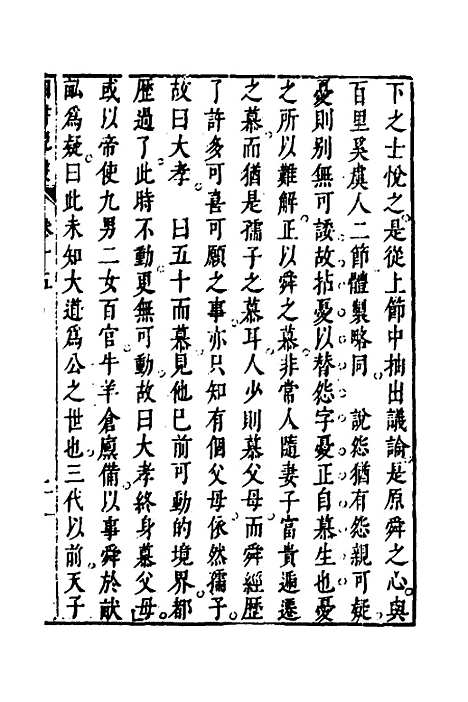 下之士悅之是從上節中抽出議論是原舜之心與
百里奚虞人二節體製略同　說怨猶有怨親可疑
憂則别無可諉故拈憂以替怨字憂正自慕生也憂
之所以難解正以舜之慕非常人隨妻子富貴遞遷
之慕而猶是孺子之慕耳人少則慕父母而舜經歷
了許多可喜可願之事亦只知有個父母依然孺子
故曰大孝　曰五十而慕見他已前可動的境界都
歷過了此時不動更無可動故曰大孝終身慕父母
或以帝使九男二女百官牛羊倉廪備以事舜於畎
畝爲疑曰此未知大道爲公之世也三代以前天子
卷十五